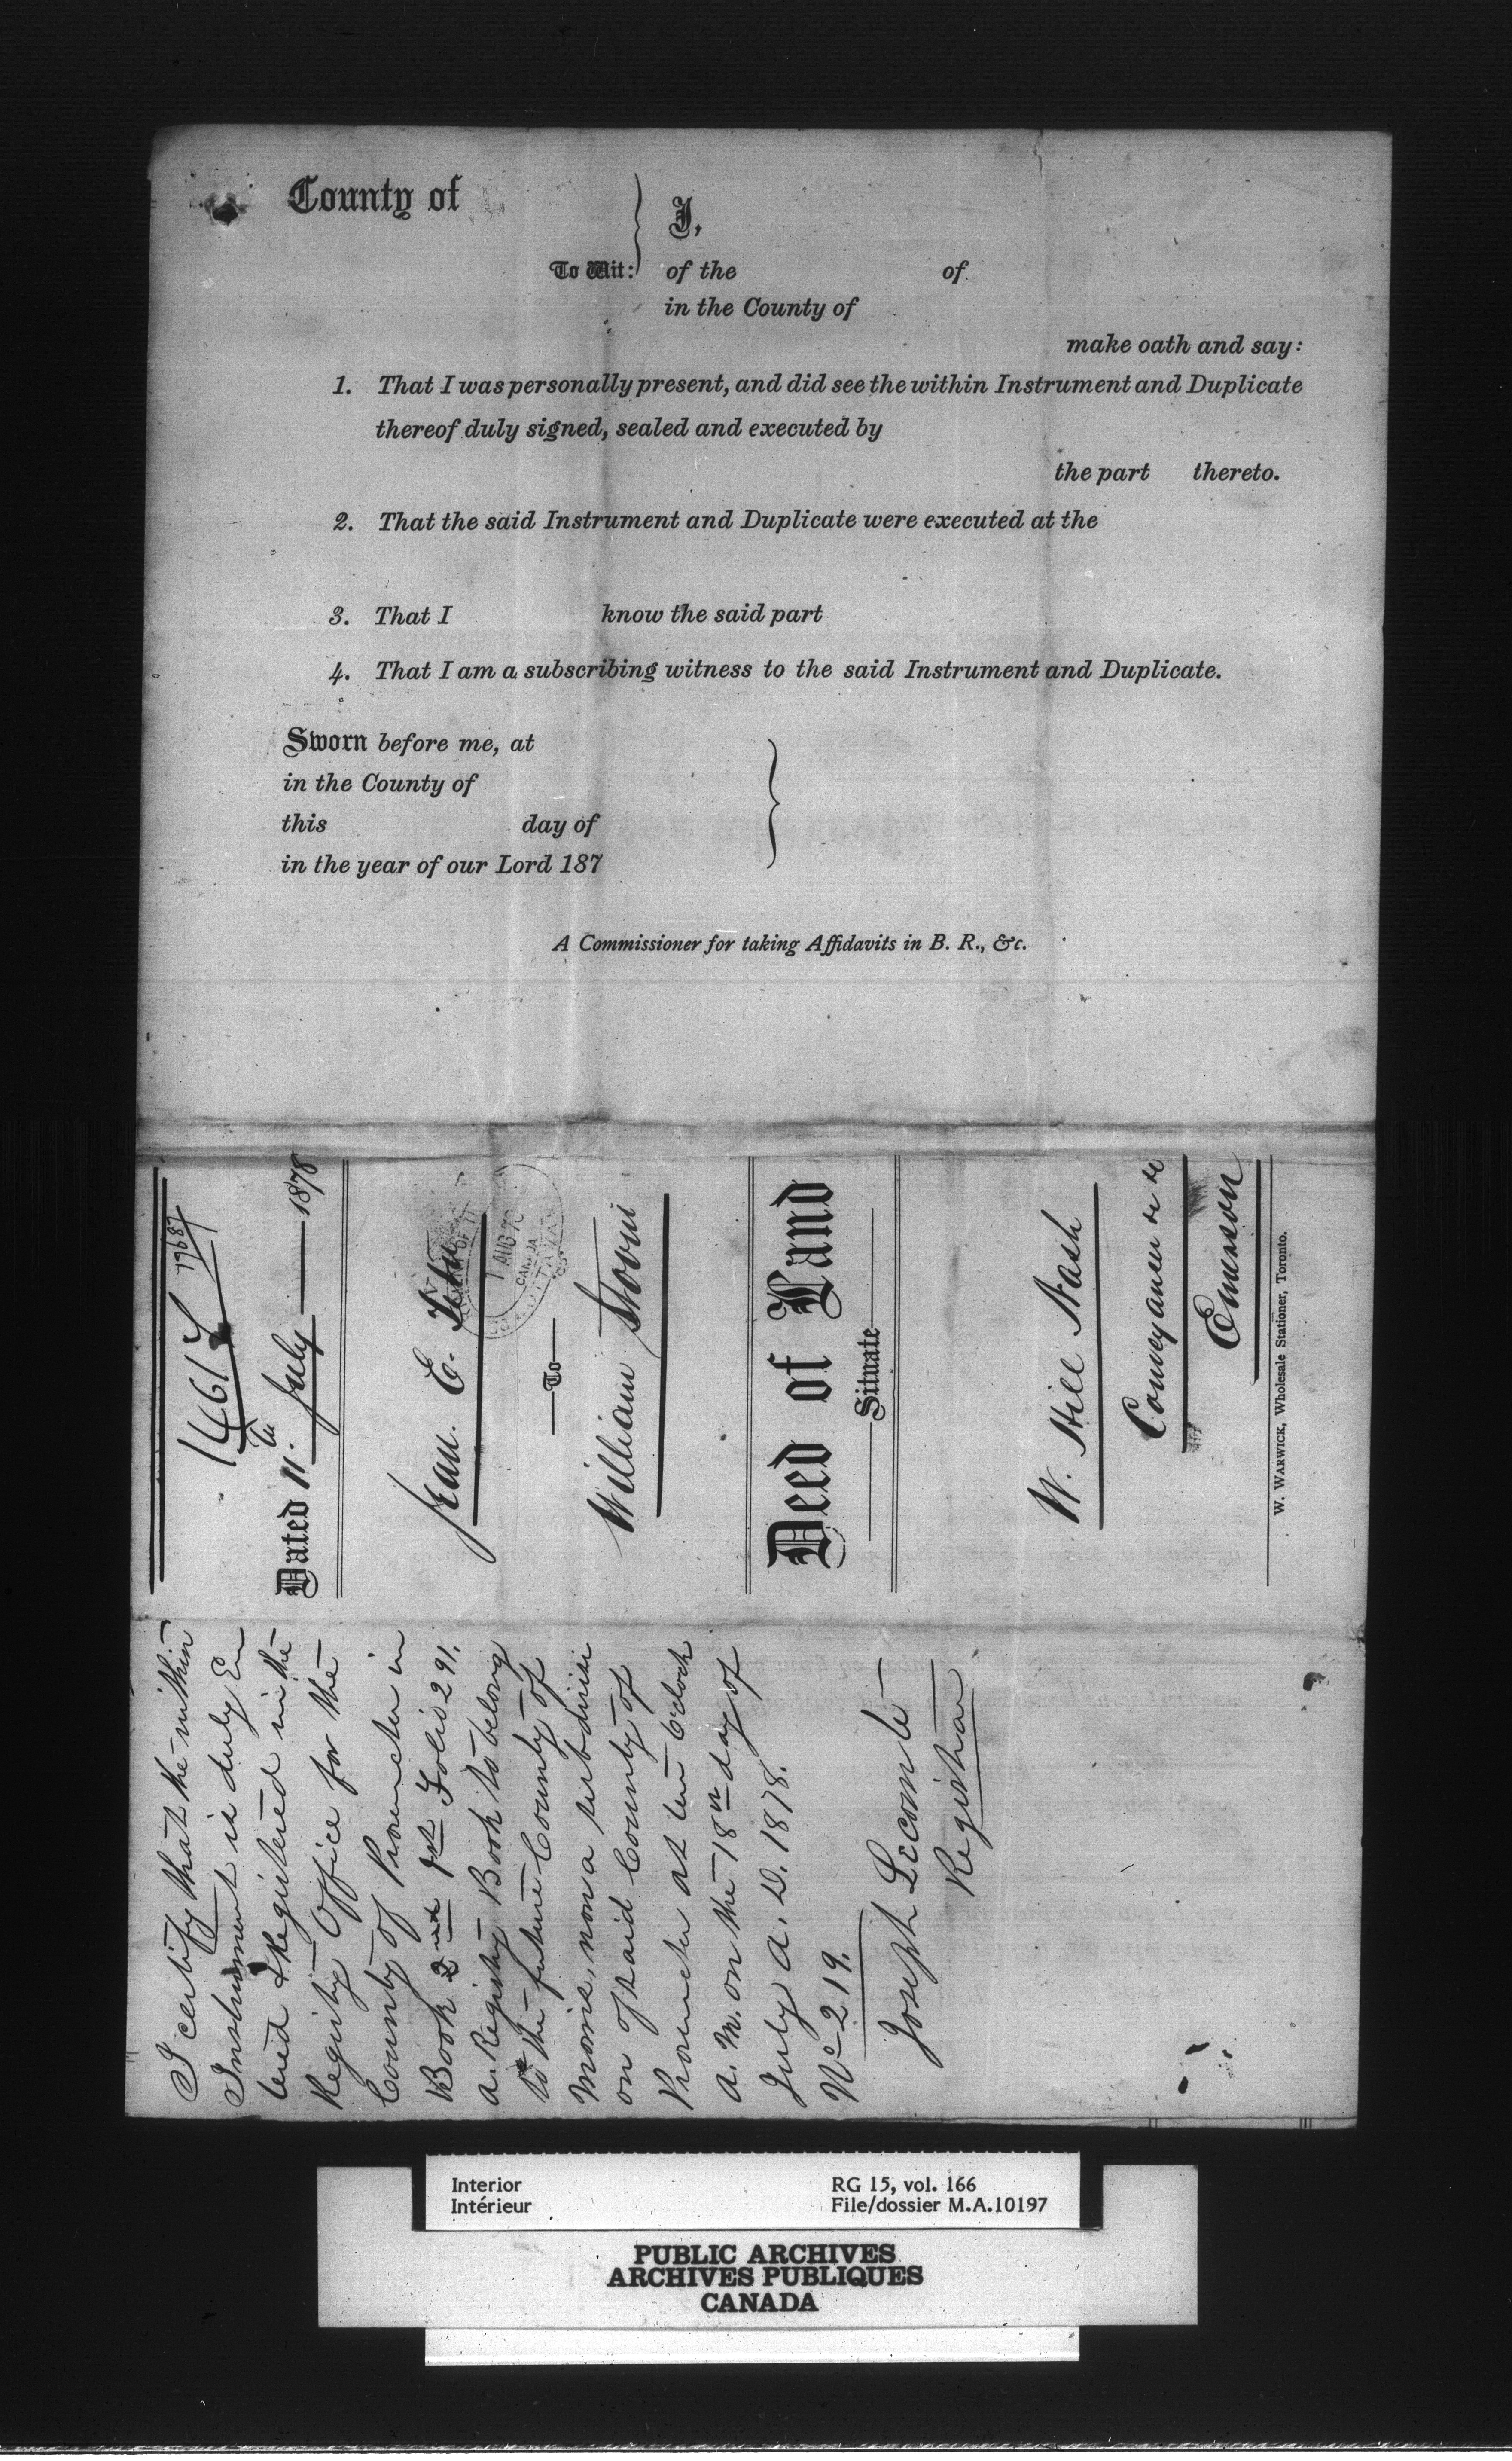 County of
I,
To Wit: of the of
in the County of
make oath and say:
1. That I was personally present, and did see the within Instrument and Duplicate
thereof duly signed, sealed and executed by
the part thereto.
2. That the said Instrument and Duplicate were executed at the
3. That I know the said part
4. That I am a subscribing witness to the said Instrument and Duplicate.
Sworn before me, at
in the County of
this day of
in the year of our Lord 187
A Commissioner for taking Affidavits in B. R., &c.
19687
Dated 11. July 1878
Jean. E.
1 AUG 7
CANADA
To
William
Deed of Land
Situate
W. Hill Nash
Conveyancer &c &c
Emerson
W. WARWICK, Wholesale Stationer, Toronto.
I certify that the within
Instrument is duly En
tered & Registered in the
Registry Office for the
County of Provencher in
Book 1st Folio 291.
a Registry Book to belong
to the future County of
Morris, now a subdivisi
on of said County of
Provencher at ten O'clock
A. M. on the 18th day of
July A. D. 1878.
No 219.
Joseph Lecomte
Registrar
Interior RG 15, vol. 166
Intérieur File/dossier M.A.10197
PUBLIC ARCHIVES
ARCHIVES PUBLIQUES
CANADA